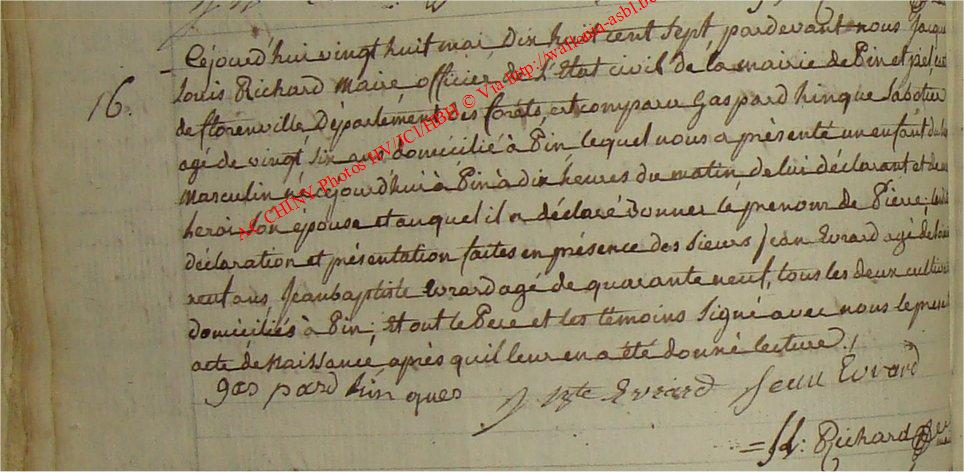 Cejourd'hui vingt huit mai Dix huit cent sept pardevant nous Jacque
16. Louis Richard Maire officier de L'Etat civil de la mairie de Pin et
de florenville Département des forets, est comparu Gaspard hinque Sabotier
agé de vingt six ans domicilié à Pin lequel nous a présenté un enfant du
Masculin né cejourd'hui à Pin à dix heures du matin, de lui déclarant et de
son épouse et auquel il a déclaré donner le prenom de Pierre;
déclaration et présentation faites en présence des Sieurs Jean Evrard agé de
neuf ans Jean baptiste Evrard agé de quarante neuf, tous les deux
domiciliés à Pin; Et ont le Pere et les témoins Signé avec nous le
acte de Naissance, après qu'il leur en a été donné lecture.
gas pard hin ques J Bte Evrard Jean Evrard
JL: Richard
AC CHINY, Photos HV/JCl/HBH © Via http://wallonia-asbl.be